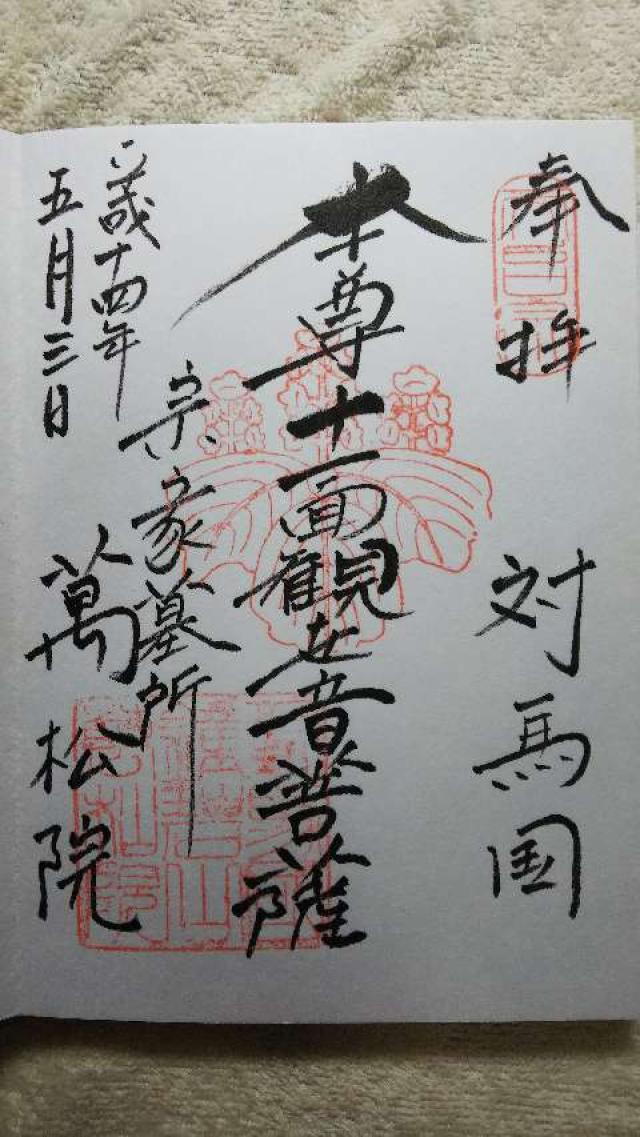 奉拝
対馬国
本尊十一面観世音菩薩
宗家墓所
萬松院
平成十四年
五月三日